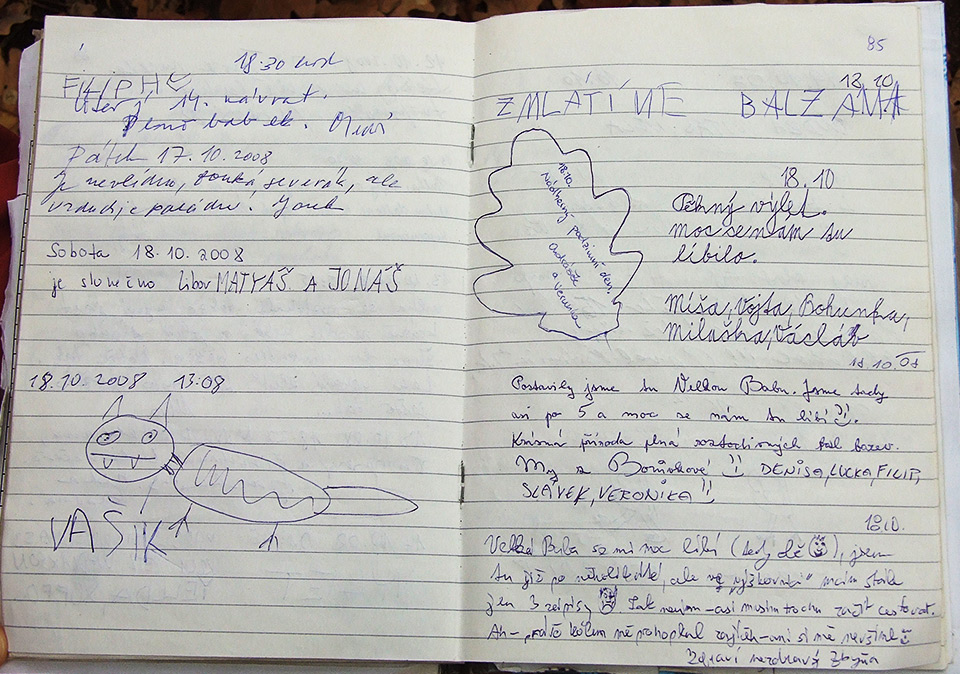 18.30 hod
FILIP HČ
Úterý 14. návrat.
Plno babek.
Pátek 17.10.2008
Je nevlídno, fouká severák, ale
vzduch je parádní.
Sobota 18.10.2008
je slunečno Libor MATYÁŠ A JONÁŠ
18.10.2008 13:08
VAŠIK
85
18.10
ZMLÁTÍME BALZAMA
18.10.
Nádherný podzimní den
a Veronika
18.10
Pěkný výlet.
moc se nám tu
líbilo.
Míša, Vojta, Bohunka,
Miluška, Václav
18 10. 08
Postavily jsme tu Velkou Babu. Jsme tady
asi po 5 a moc se nám tu líbí
Krásná příroda plná roztodivných barev.
My z Borůvkové DENISA, LUCKA, FILIP,
SLÁVEK, VERONIKA
18.10.
Velká Buba se mi moc líbí (tedy dě ), jsem
tu již po několikáté, ale ve "výškovnici" mám stále
jen 3 zápisy Tak nevím - asi musím trochu začít cestovat.
Ah - právě kolem mě prohopkal zajíček - ani si mě nevšiml
Zdraví nezdravá Zbyňa